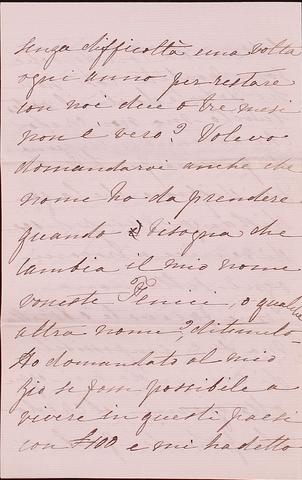 senza difficoltà una volta
ogni anno per restare
con noi due o tre mesi
non è vero? Volevo
domandarvi anche che
nome ho da prendere
quando bisogna che
cambia il mio nome
voneste Fenici, o qualche
altra nome?, ditemelo
Ho domandato al mio
zio se fosse possibile a
vivere in questi paesi
con £100 e mi ha detto